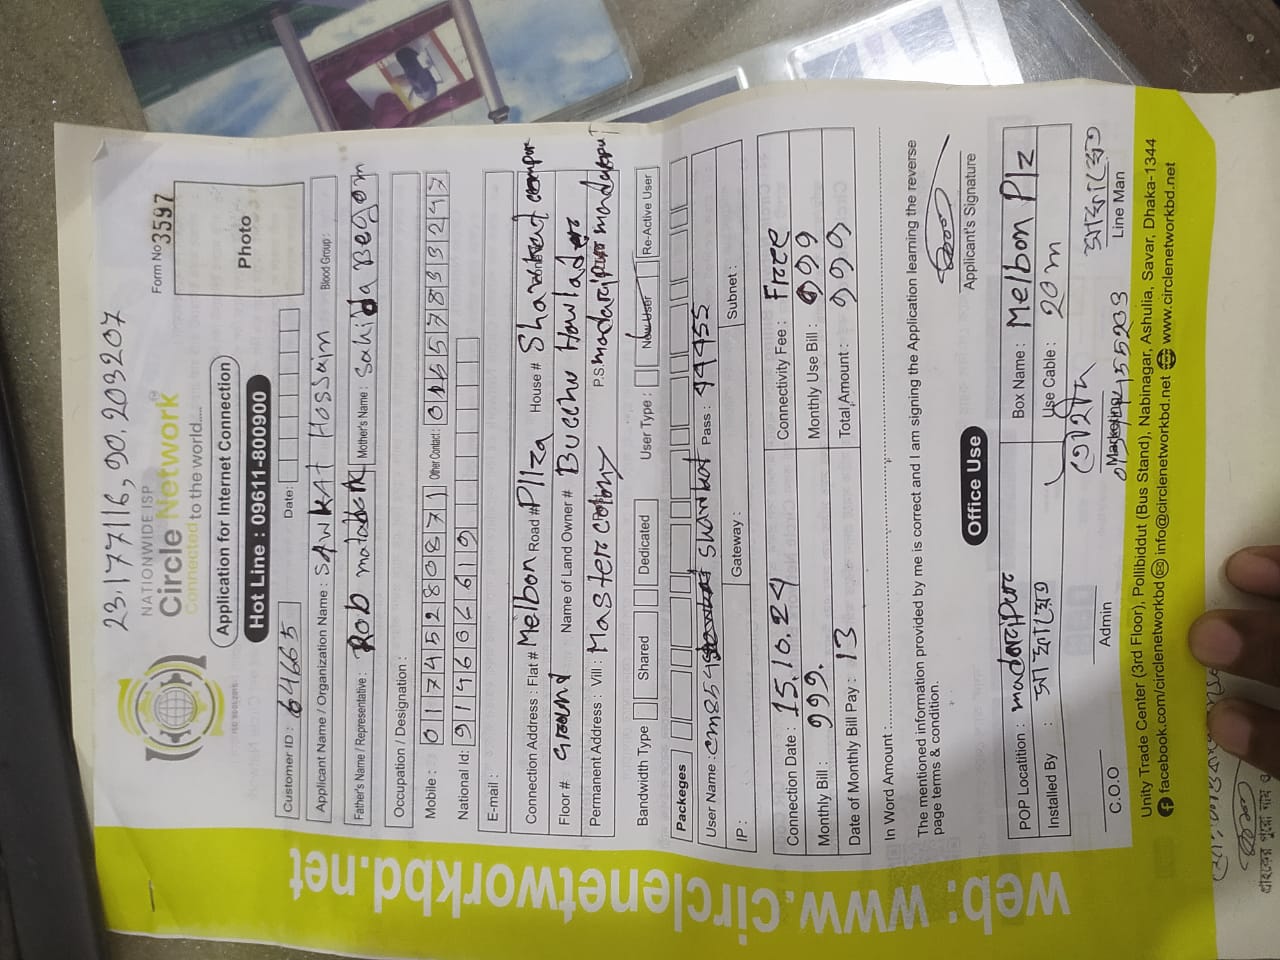 23.177116, 90.203207
NATIONWIDE ISP
Circle Network
Connected to the world.....
Form No 3597
Photo
Application for Internet Connection
Hot Line : 09611-800900
Customer ID : 64665 Date:
Applicant Name / Organization Name : SAWKAT HoSSain Blood Group :
Father's Name / Representative : Rob matabbar Mother's Name : Sahida Begom
Occupation / Designation :
Mobile : 01745280871 Other Contact :
National Id: 9114666619
E-mail :
Connection Address : Flat # Melbon Road # Pllza House #
Floor # Ground Name of Land Owner # Bucchu Howlader
Permanent Address : Vill : Master colony P.S: madaripur madaripur
Bandwidth Type Shared Dedicated User Type : New User Re-Active User
Packeges
User Name : cm854 Shawkat Pass : 44455
IP : Gateway : Subnet :
Connection Date : 15.10.24 Connectivity Fee : Free
Monthly Bill : 999. Monthly Use Bill : 999
Date of Monthly Bill Pay : 13 Total Amount : 999
In Word Amount :
The mentioned information provided by me is correct and I am signing the Application learning the reverse
page terms & condition.
Applicant's Signature
Office Use
POP Locatition : madaripur Box Name : Melbon Plz
Installed By : Use Cable : 20m
C.O.O Admin Marketing Line Man
Unity Trade Center (3rd Floor), Pollibiddut (Bus Stand), Nabinagar, Ashulia, Savar, Dhaka-1344
facebook.com/circlenetworkbd info@circlenetworkbd.net www.circlenetworkbd.net
web: www.circlenetworkbd.net